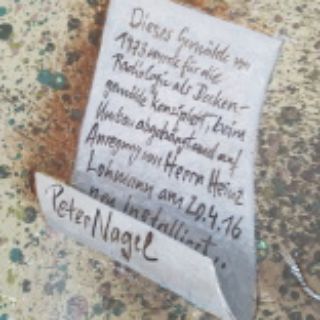 Dieses Gemälde von
1978 wurde für die
Radiologie als Decken-
gemälde konzipiert, beim
Umbau abgehängt und auf
Anregung von Herrn Heinz
Lohmann am 20.4.16
neu installiert..
Peter Nagel